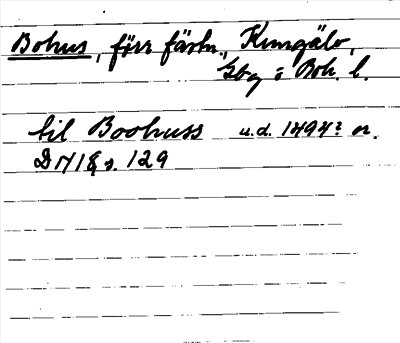 Bohus, förr fästn., Kungälv,
Gbg o Boh. l.
til Boohuss u.d. 1494? or.
DN 18 s. 129